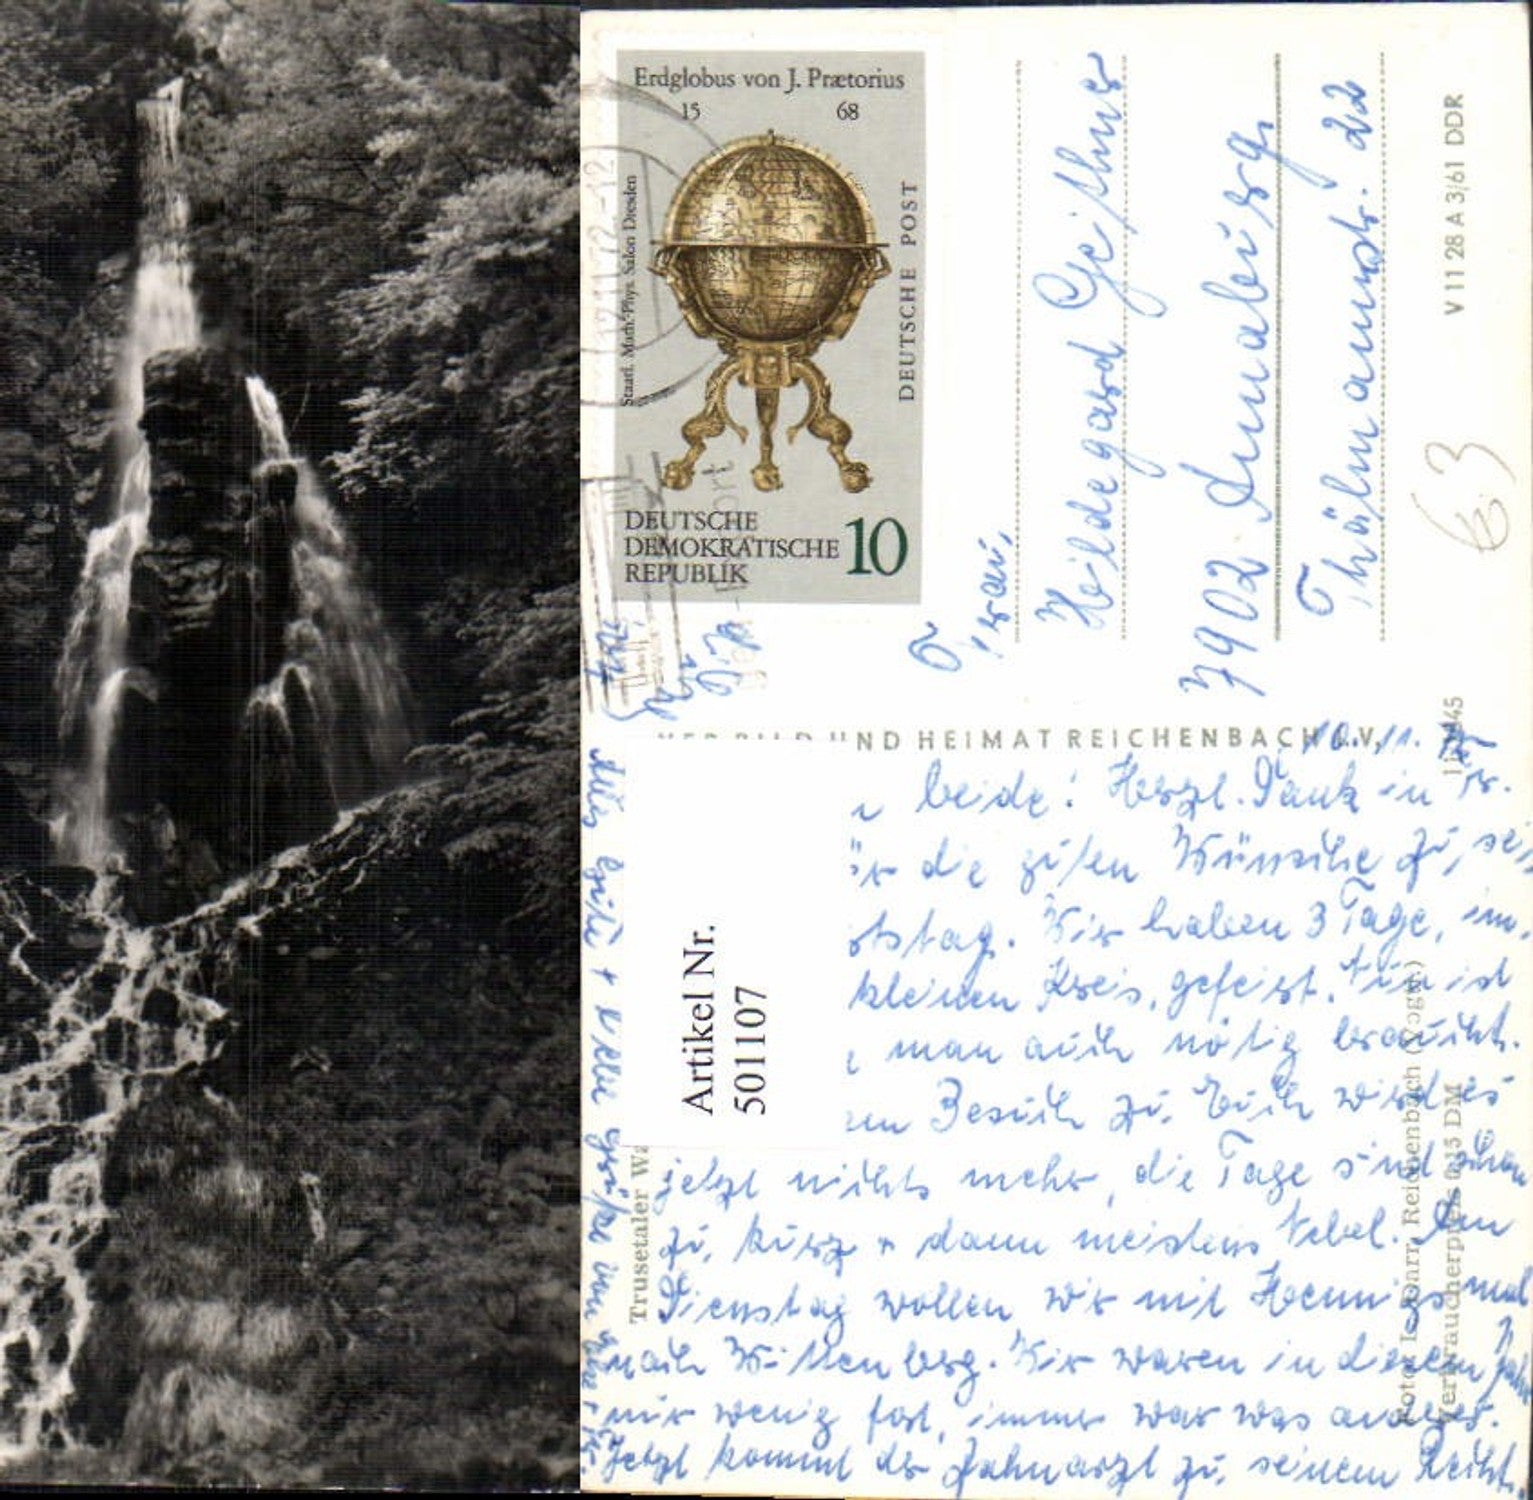 Erdglobus von J. Prætorius
15 68
Staatl. Math.-Phys. Salon Dresden
DEUTSCHE POST
DEUTSCHE
DEMOKRATISCHE
REPUBLIK
10
12.11.72-12
Frau
Hildegard
7902 Annaburg
Thälmannstr. 22
V 11 28 A 3/61 DDR
63
BILD UND HEIMAT REICHENBACH I. V.
10. 11.
beide! Herzl. Dank in
die guten Wünsche zu
tstag. Wir haben 3 Tage, im
kleinen Kreis, gefeiert. Nun ist
man auch nötig braucht.
Besuch zu Euch wird es
jetzt nichts mehr, die Tage sind schon
zu kurz + dann meistens Nebel. Am
Dienstag wollen wir mit Hennigs mal
nach Wittenberg. Wir waren in diesem Jahr
nur wenig fort, immer war was anderes.
Jetzt kommt der Zahnarzt zu seinem Recht.
Alles Gute + liebe Grüße von
Artikel Nr.
501107
Trusetaler Wa
Reichenbach (Vogtl.)
Verbraucherpreis 0,15 DM